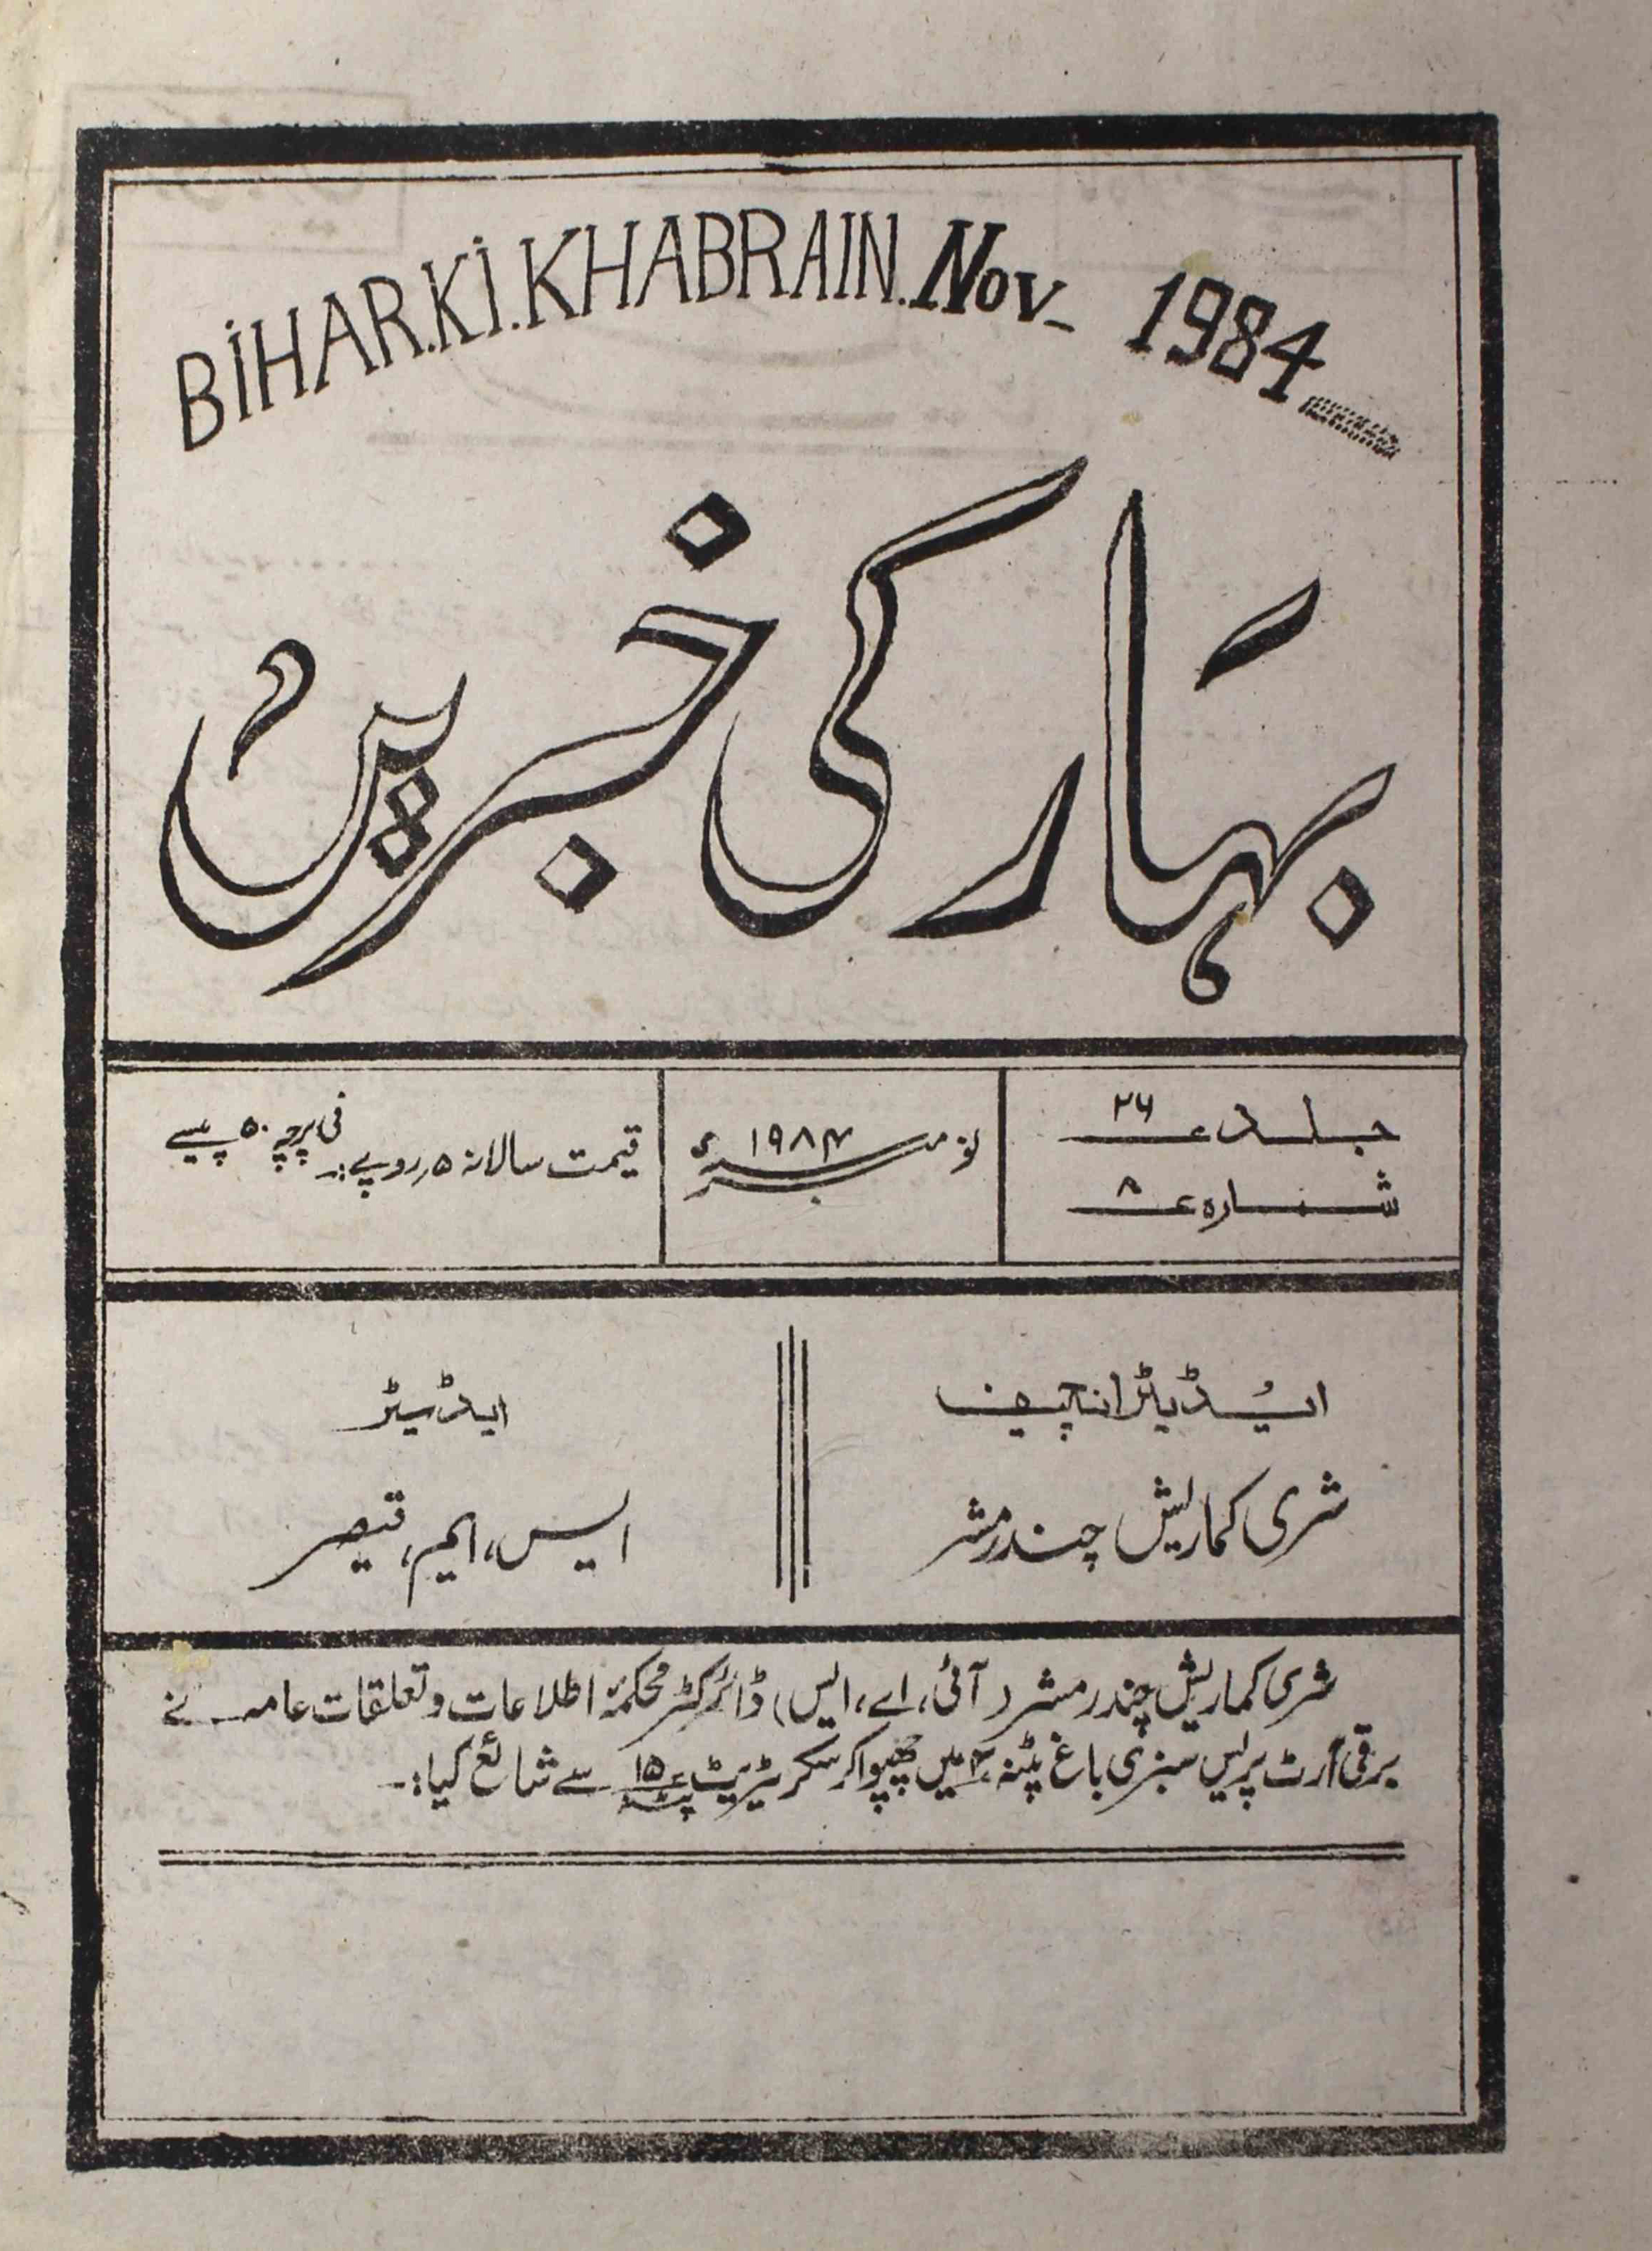 BIHAR.KI.KHABRAIN. Nov_ 1984
بہار کی خبریں
جلد ۲۶
شمارہ ۸
نومبر ۱۹۸۴ء
قیمت سالانہ ۵ روپے :۔ فی پرچہ ۵۰ پیسے
ایڈیٹر انچیف
شری کماریش چندر مشر
ایڈیٹر
ایس، ایم، قیصر
شری کماریش چندر مشر (آئی، اے، ایس) ڈائرکٹر محکمۂ اطلاعات و تعلقات عامہ نے
برقی آرٹ پریس سبزی باغ پٹنہ ۴ میں چھپوا کر سکریٹریٹ پٹنہ ۱۵ سے شائع کیا :۔